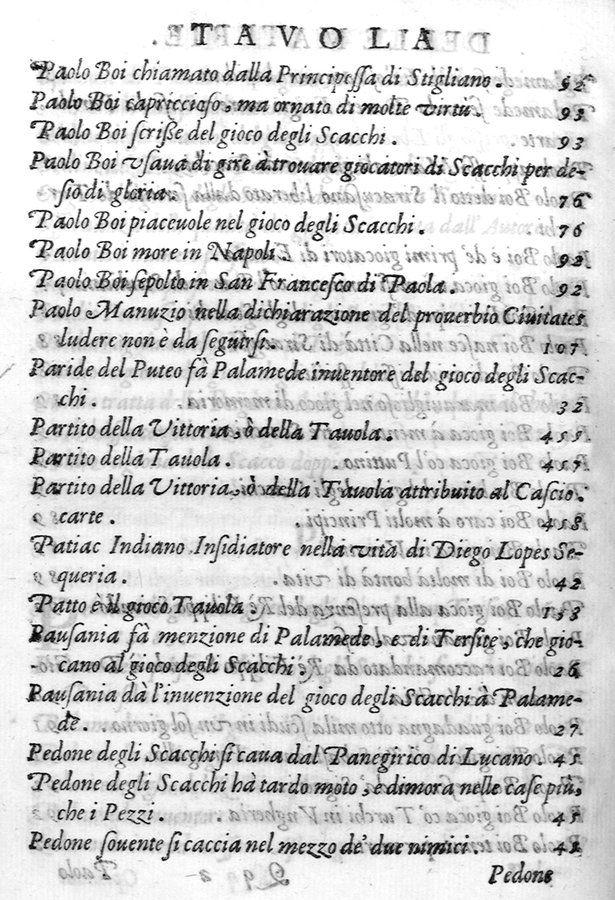 TAVOLA.
Paolo Boi chiamato dalla Principessa di Stigliano. 92
Paolo Boi capriccioso, ma ornato di molte virtù. 93
Paolo Boi scrisse del gioco degli Scacchi. 93
Paolo Boi vsaua di gire à trouare giocatori di Scacchi per de-
sio di gloria. 76
Paolo Boi piaceuole nel gioco degli Scacchi. 76
Paolo Boi more in Napoli. 92
Paolo Boi sepolto in San Francesco di Paola. 92
Paolo Manuzio nella dichiarazione del prouerbio Ciuitates
ludere non è da seguirsi. 107
Paride del Puteo fà Palamede inuentore del gioco degli Scac-
chi. 32
Partito della Vittoria, ò della Tauola.
Partito della Tauola.
Partito della Vittoria, ò della Tauola attribuito al Cascio.
carte. 418
Patiac Indiano Insidiatore nella vita di Diego Lopes Se-
queria. 42
Patto è il gioco Tauola. 153
Pausania fà menzione di Palamede, e di Tersite, che gio-
cano al gioco degli Scacchi. 26
Pausania dà l'inuenzione del gioco degli Scacchi à Palame-
de. 27
Pedone degli Scacchi si caua dal Panegirico di Lucano.
Pedone degli Scacchi hà tardo moto, e dimora nelle case più,
che i Pezzi.
Pedone souente si caccia nel mezzo de' due nimici.
Pedone